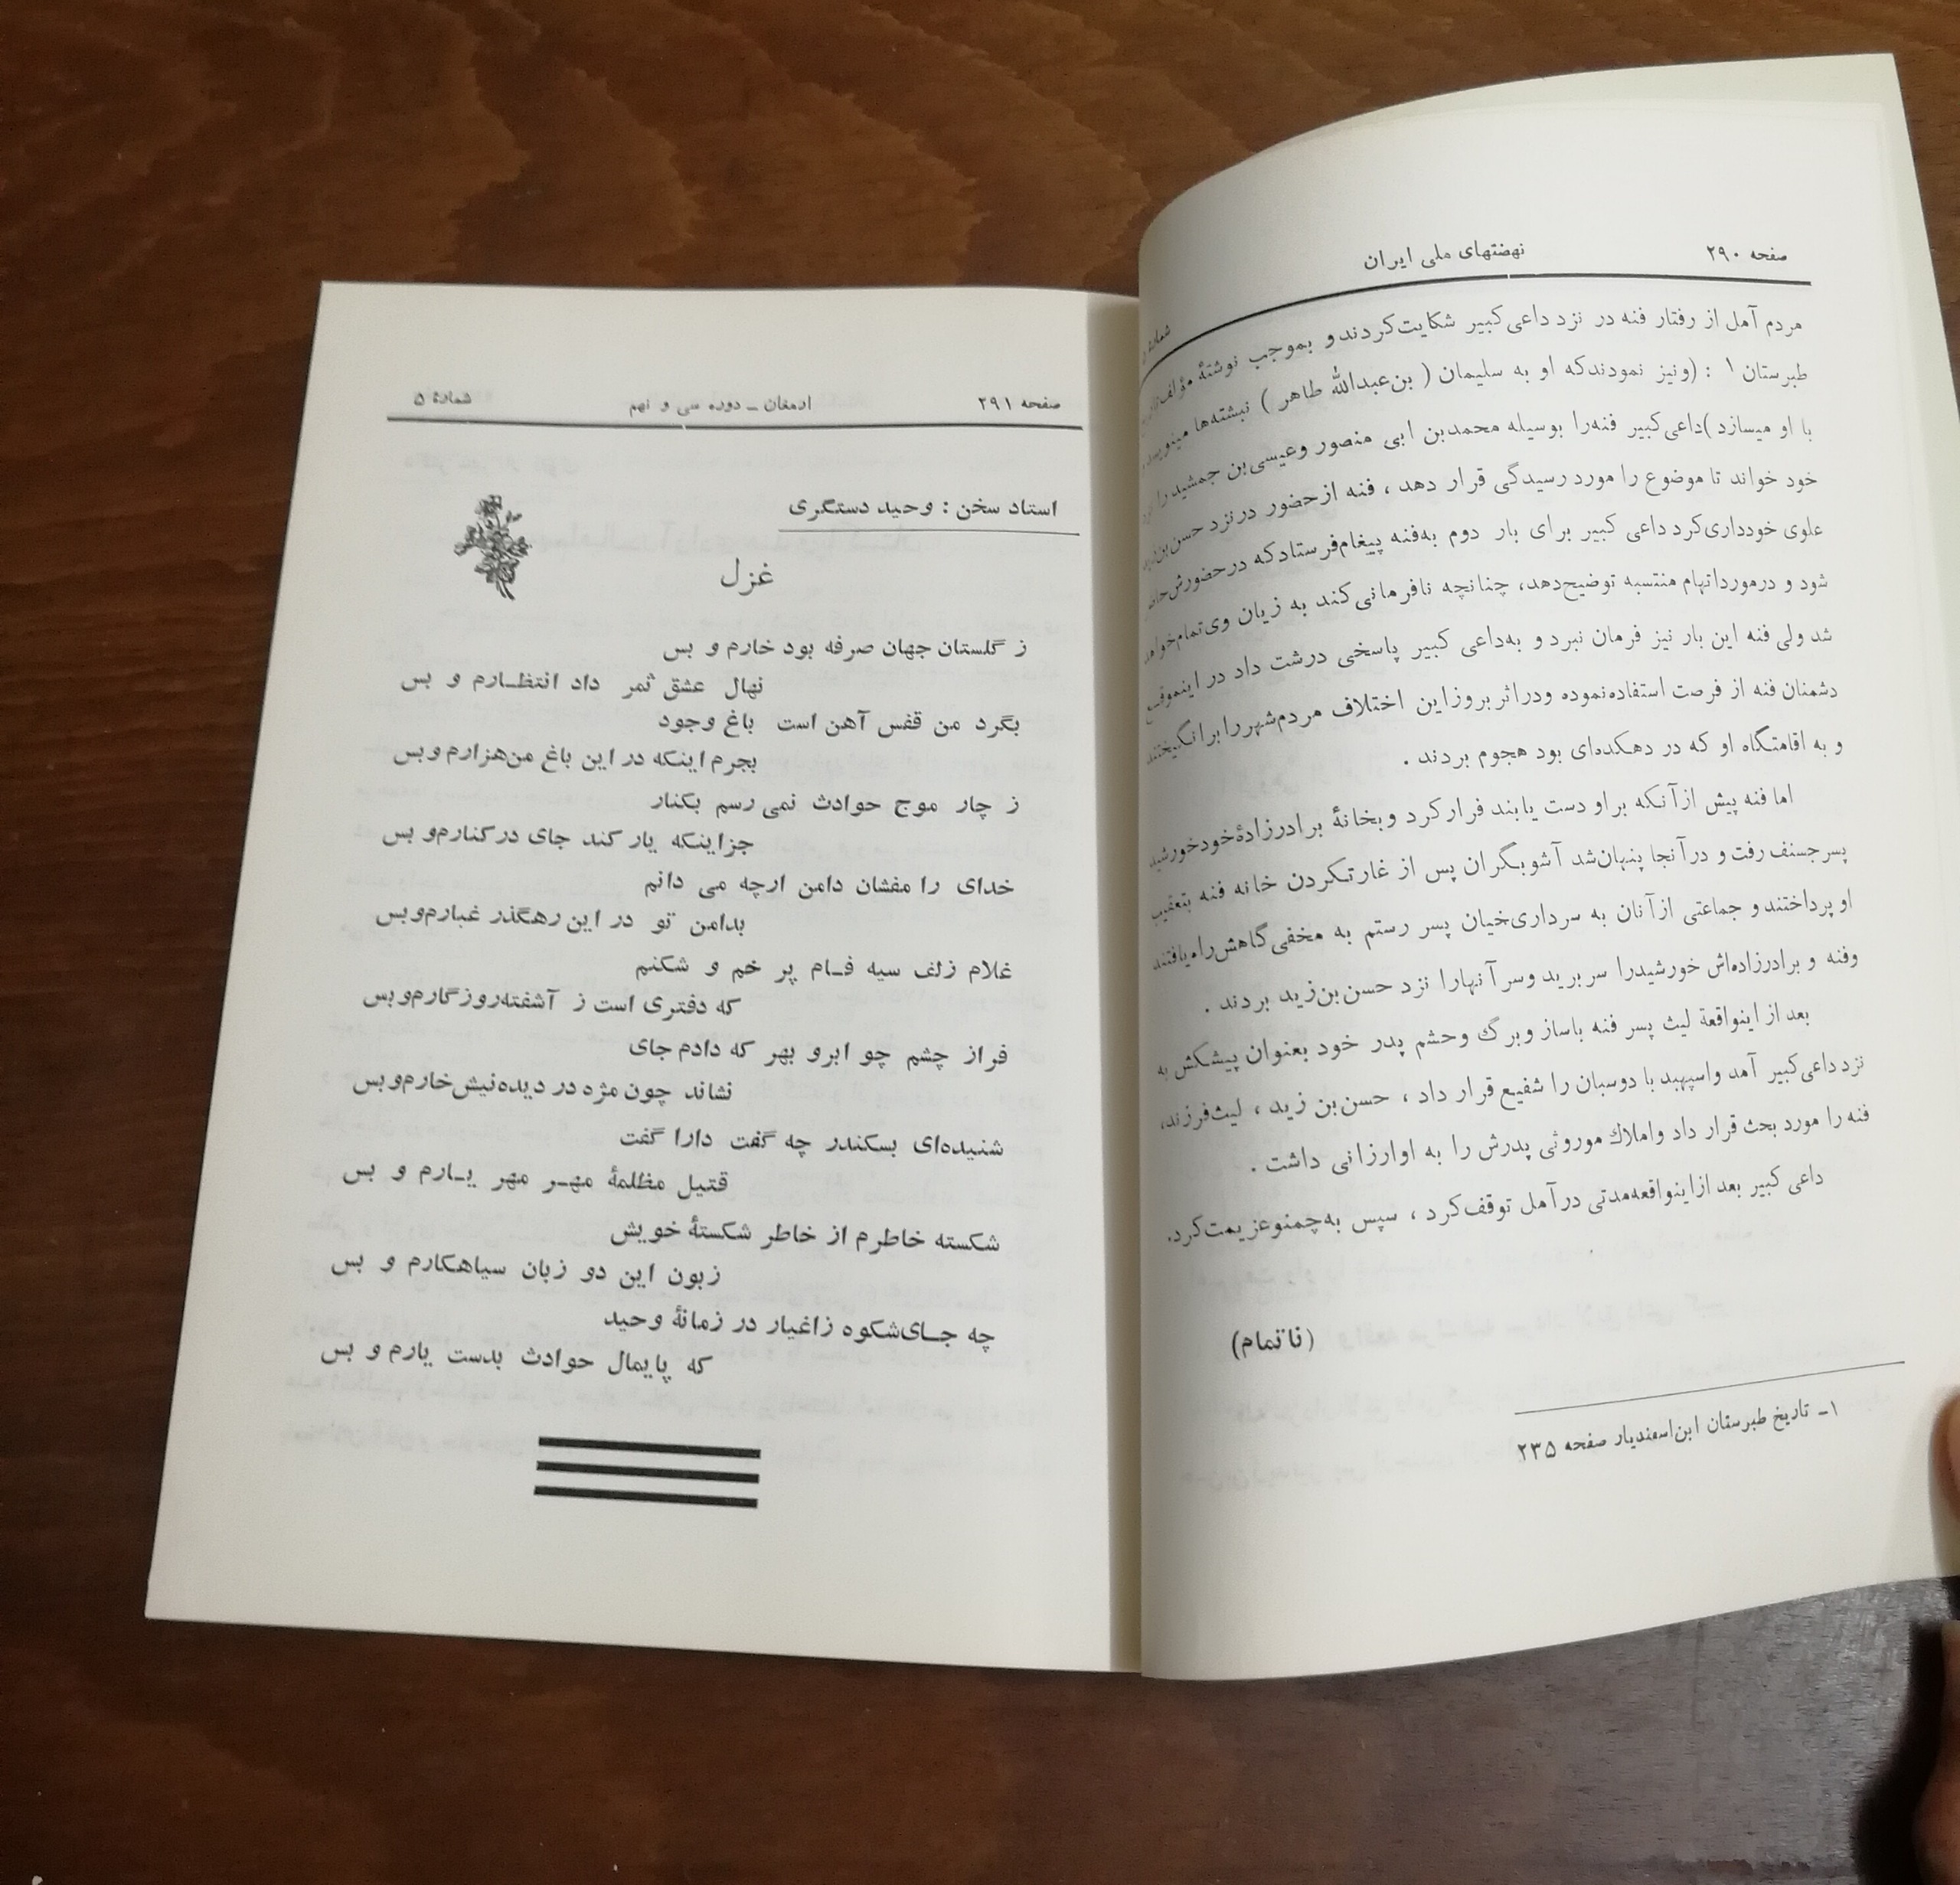 صفحه ۲۹۰
نهضتهای ملی ایران
شمارهٔ
مردم آمل از رفتار فنه در نزد داعی کبیر شکایت کردند و بموجب نوشتهٔ مؤلف
طبرستان ۱ : (ونیز نمودندکه او به سلیمان ( بن عبدالله طاهر ) نبشته‌ها مینویسد
با او میسازد )داعی کبیر فنه‌را بوسیله محمدبن ابی منصور وعیسی بن جمشید را
خود خواند تا موضوع را مورد رسیدگی قرار دهد ، فنه از حضور در نزد حسن بن
علوی خودداری کرد داعی کبیر برای بار دوم به‌فنه پیغام فرستاد که در حضورش
شود و درمورد اتهام منتسبه توضیح‌دهد، چنانچه نافرمانی کند به زیان وی تمام خواهد
شد ولی فنه این بار نیز فرمان نبرد و به‌داعی کبیر پاسخی درشت داد در اینموقع
دشمنان فنه از فرصت استفاده‌نموده ودراثر بروز این اختلاف مردم شهر را برانگیختند
و به اقامتگاه او که در دهکده‌ای بود هجوم بردند .
اما فنه پیش از آنکه بر او دست یابند فرار کرد و بخانهٔ برادرزادهٔ خود خورشید
پسر جسنف رفت و در آنجا پنهان‌شد آشوبگران پس از غارت‌کردن خانه فنه بتعقیب
او پرداختند و جماعتی از آنان به سرداری خیان پسر رستم به مخفی گاهش راه یافتند
وفنه و برادرزاده‌اش خورشیدرا سر برید وسر آنهارا نزد حسن بن زید بردند .
بعد از اینواقعهٔ لیث پسر فنه باساز وبرگ وحشم پدر خود بعنوان پیشکش به
نزد داعی کبیر آمد واسپهبد با دوسبان را شفیع قرار داد ، حسن بن زید ، لیث فرزند،
فنه را مورد بحث قرار داد واملاك موروثی پدرش را به اوارزانی داشت .
داعی کبیر بعد از اینواقعه‌مدتی در آمل توقف کرد ، سپس به‌چمنو عزیمت کرد.
(ناتمام)
۱ـ تاریخ طبرستان ابن اسفندیار صفحه ۲۳۵
صفحه ۲۹۱
ارمغان ـ دوره سی و نهم
شمارهٔ ۵
استاد سخن : وحید دستگری
غزل
ز گلستان جهان صرفه بود خارم و بس
نهال عشق ثمر داد انتظـارم و بس
بگرد من قفس آهن است باغ وجود
بجرم اینکه در این باغ من هزارم وبس
ز چار موج حوادث نمی رسم بکنار
جزاینکه یار کند جای در کنارم و بس
خدای را مفشان دامن ارچه می دانم
بدامن تو در این رهگذر غبارم وبس
غلام زلف سیه فـام پر خم و شکنم
که دفتری است ز آشفته‌روزگارم وبس
فراز چشم چو ابرو بهر که دادم جای
نشاند چون مژه در دیده نیش خارم وبس
شنیده‌ای بسکندر چه گفت دارا گفت
قتیل مظلمهٔ مهـر مهر یـارم و بس
شکسته خاطرم از خاطر شکستهٔ خویش
زبون این دو زبان سیاهکارم و بس
چه جـای‌شکوه زاغیار در زمانهٔ وحید
که پایمال حوادث بدست یارم و بس